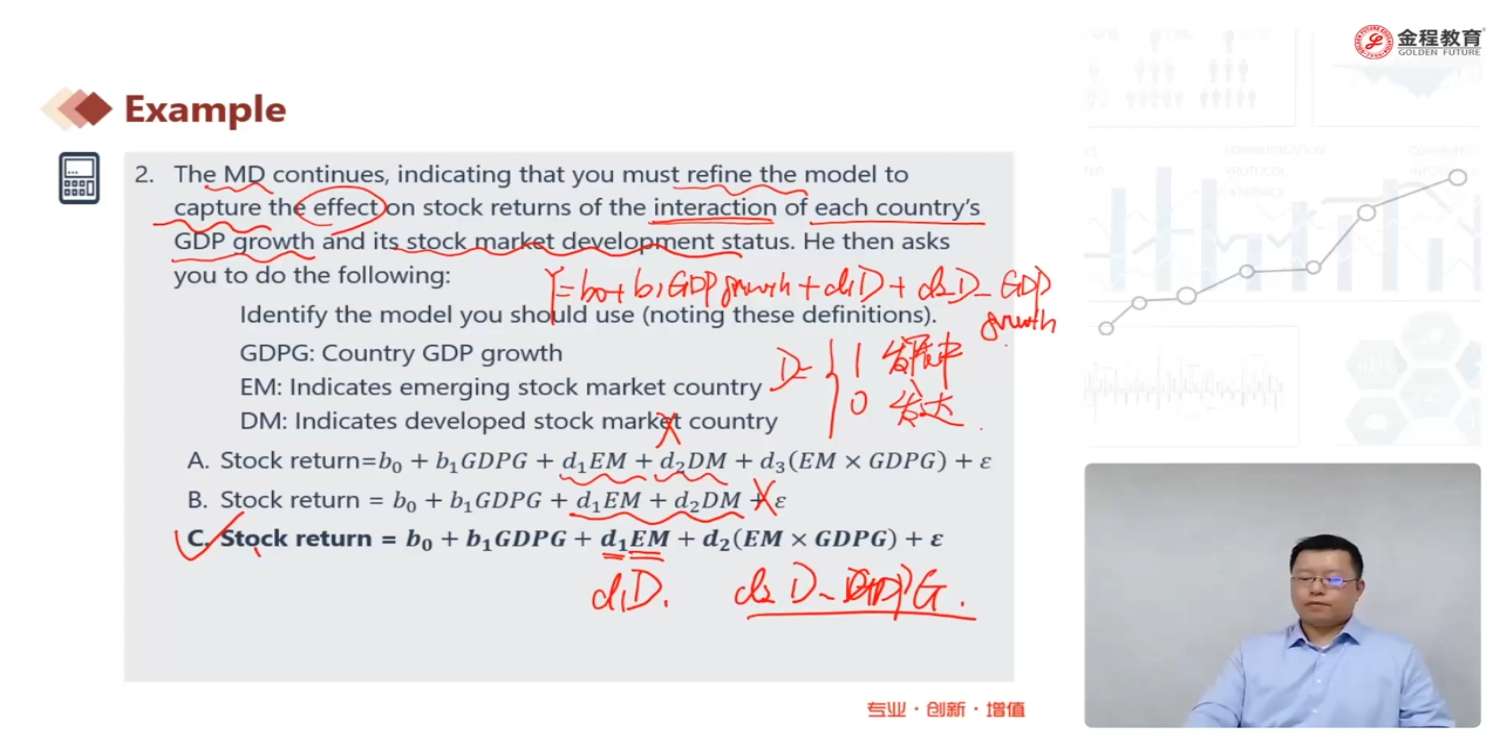 金程教育
GOLDEN FUTURE
Example
2. The MD continues, indicating that you must refine the model to
capture the effect on stock returns of the interaction of each country's
GDP growth and its stock market development status. He then asks
you to do the following:
Y = b0 + b1 GDP growth + d1D + d2_D_GDP
growth
Identify the model you should use (noting these definitions).
GDPG: Country GDP growth
D = { 1 发展中
EM: Indicates emerging stock market country
0 发达
DM: Indicates developed stock market country
A. Stock return=b₀ + b₁GDPG + d₁EM + d₂DM + d₃(EM × GDPG) + ε
B. Stock return = b₀ + b₁GDPG + d₁EM + d₂DM + ε
C. Stock return = b₀ + b₁GDPG + d₁EM + d₂(EM × GDPG) + ε
d1D. d2 D_GDPG.
专业·创新·增值